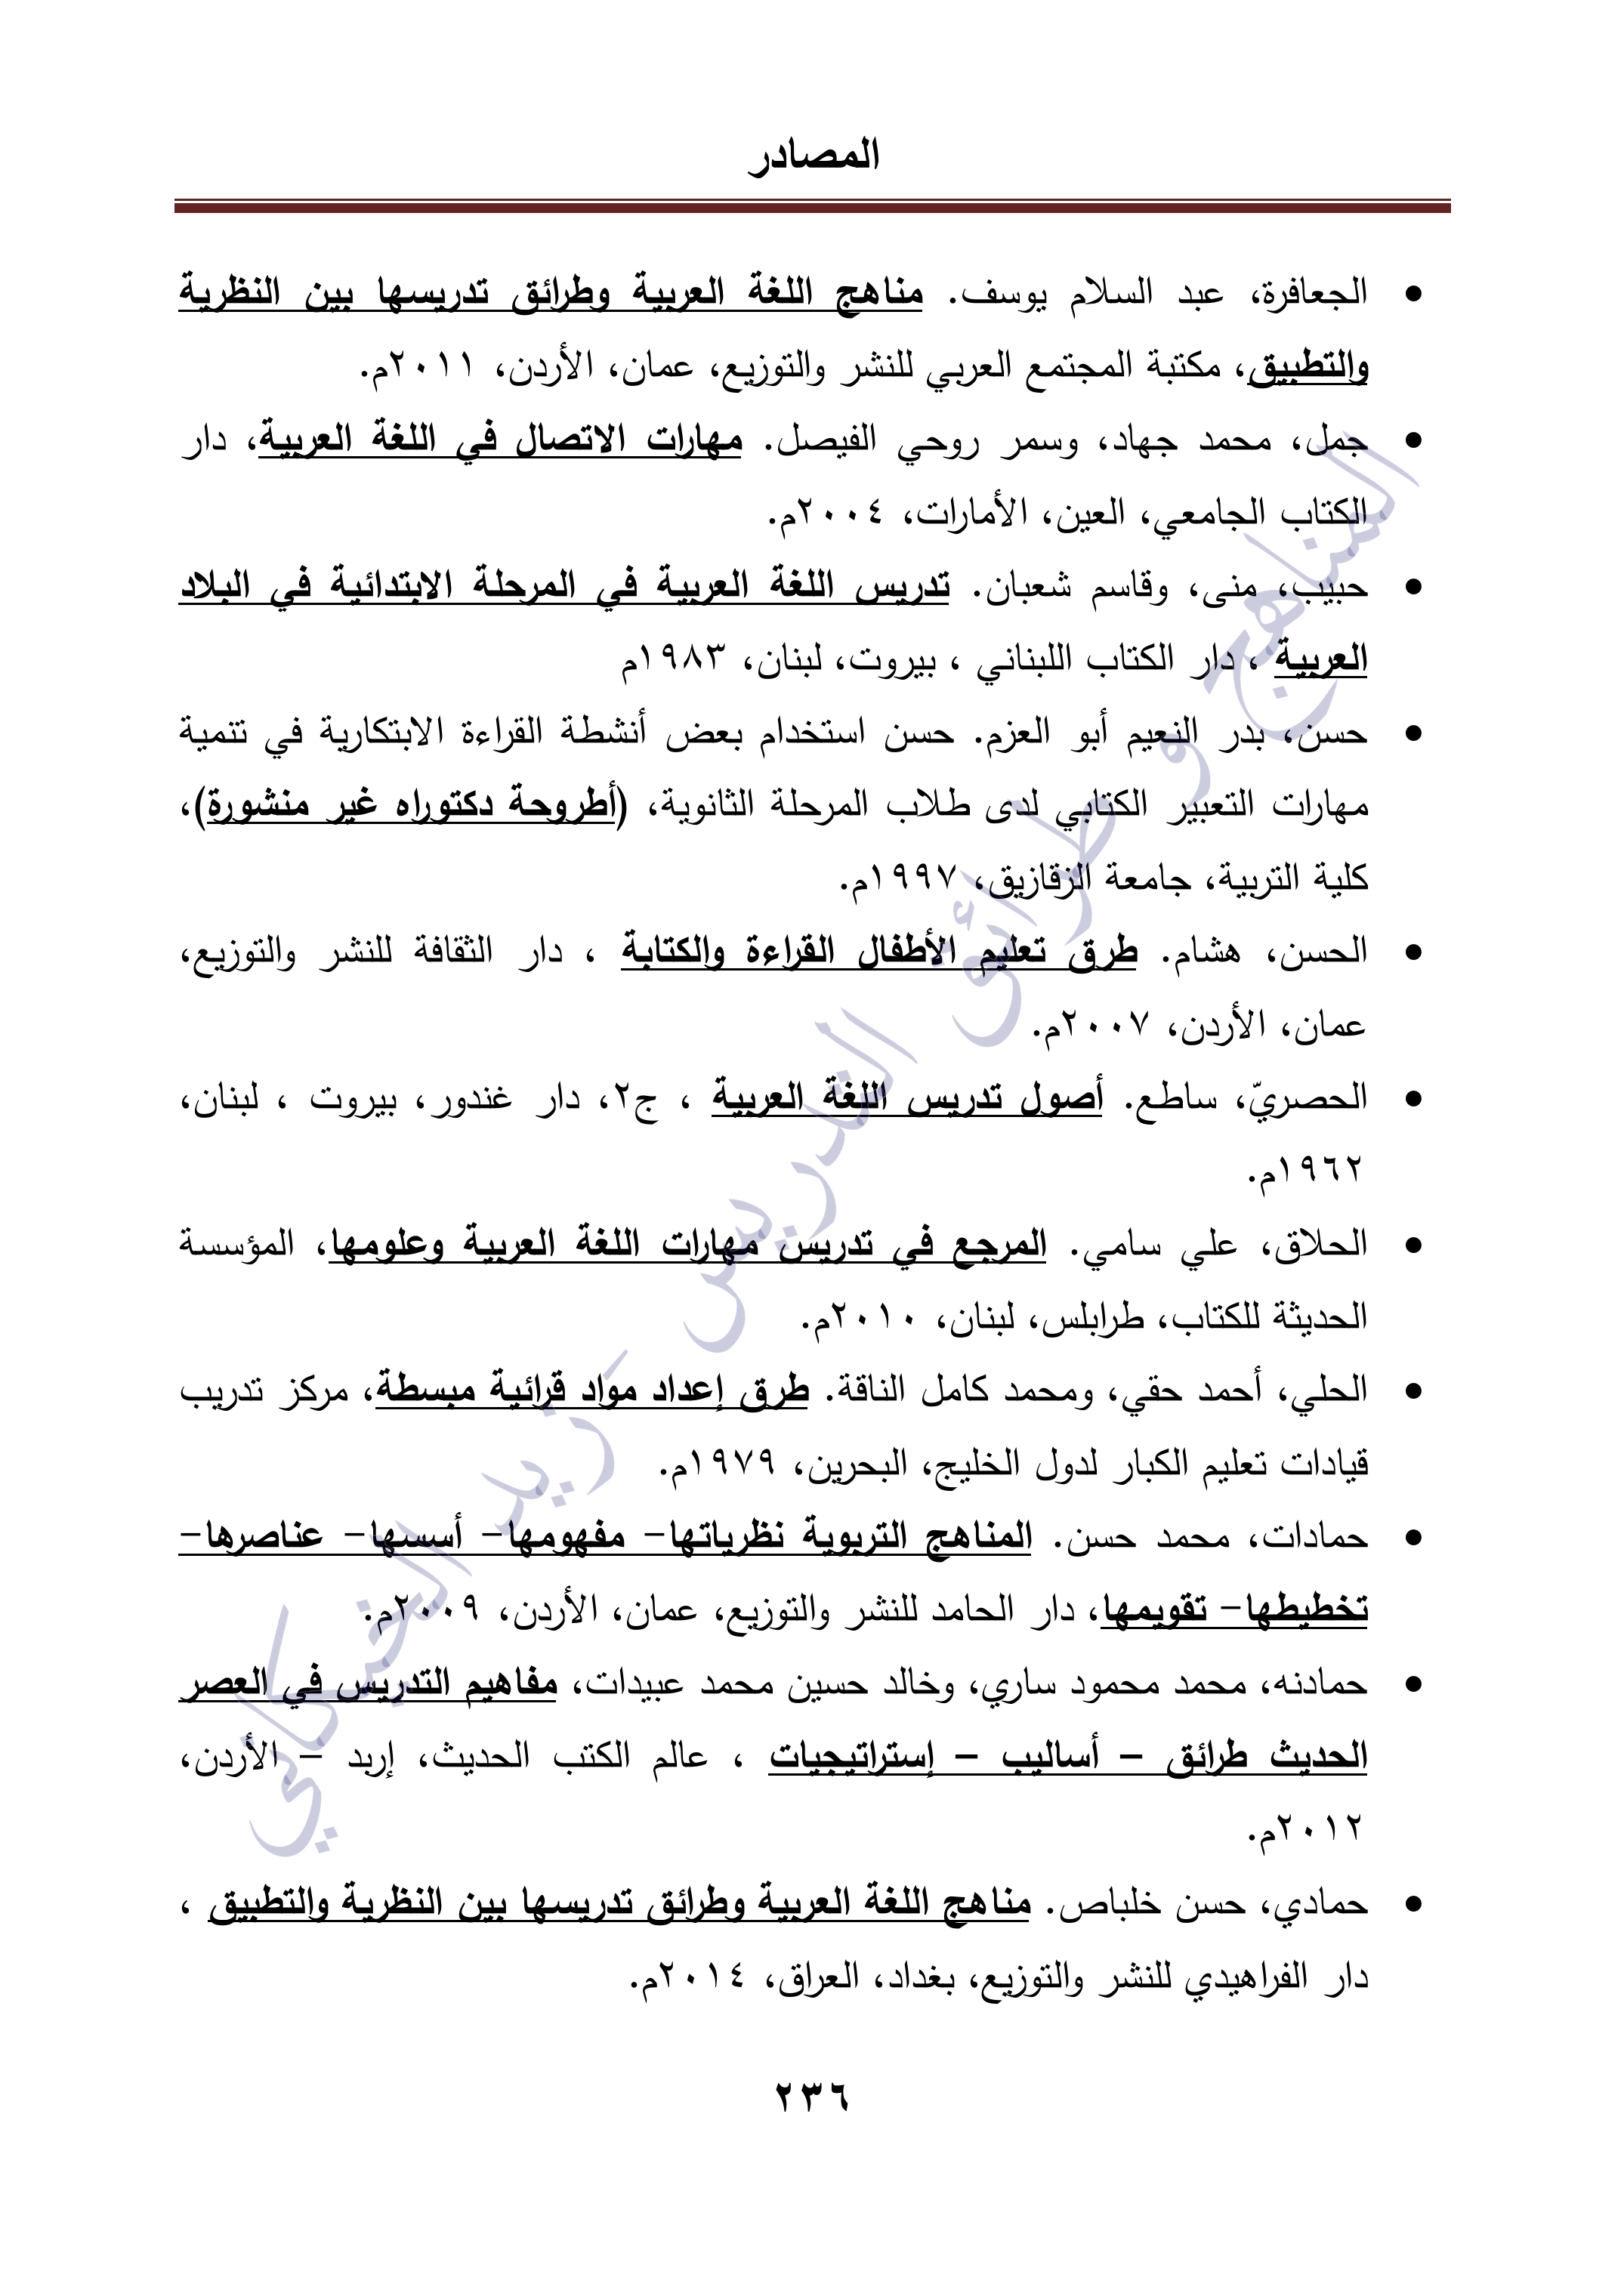 المصادر
• الجعافرة، عبد السلام يوسف. مناهج اللغة العربية وطرائق تدريسها بين النظرية
والتطبيق، مكتبة المجتمع العربي للنشر والتوزيع، عمان، الأردن، ٢٠١١م.
• جمل، محمد جهاد، وسمر روحي الفيصل. مهارات الاتصال في اللغة العربية، دار
الكتاب الجامعي، العين، الأمارات، ٢٠٠٤م.
• حبيب، منى، وقاسم شعبان. تدريس اللغة العربية في المرحلة الابتدائية في البلاد
العربية ، دار الكتاب اللبناني ، بيروت، لبنان، ١٩٨٣م
• حسن، بدر النعيم أبو العزم. حسن استخدام بعض أنشطة القراءة الابتكارية في تنمية
مهارات التعبير الكتابي لدى طلاب المرحلة الثانوية، (أطروحة دكتوراه غير منشورة)،
كلية التربية، جامعة الزقازيق، ١٩٩٧م.
• الحسن، هشام. طرق تعليم الأطفال القراءة والكتابة ، دار الثقافة للنشر والتوزيع،
عمان، الأردن، ٢٠٠٧م.
• الحصريّ، ساطع. أصول تدريس اللغة العربية ، ج٢، دار غندور، بيروت ، لبنان،
١٩٦٢م.
• الحلاق، علي سامي. المرجع في تدريس مهارات اللغة العربية وعلومها، المؤسسة
الحديثة للكتاب، طرابلس، لبنان، ٢٠١٠م.
• الحلي، أحمد حقي، ومحمد كامل الناقة. طرق إعداد مواد قرائية مبسطة، مركز تدريب
قيادات تعليم الكبار لدول الخليج، البحرين، ١٩٧٩م.
• حمادات، محمد حسن. المناهج التربوية نظرياتها- مفهومها- أسسها- عناصرها-
تخطيطها- تقويمها، دار الحامد للنشر والتوزيع، عمان، الأردن، ٢٠٠٩م.
• حمادنه، محمد محمود ساري، وخالد حسين محمد عبيدات، مفاهيم التدريس في العصر
الحديث طرائق – أساليب – إستراتيجيات ، عالم الكتب الحديث، إربد – الأردن،
٢٠١٢م.
• حمادي، حسن خلباص. مناهج اللغة العربية وطرائق تدريسها بين النظرية والتطبيق ،
دار الفراهيدي للنشر والتوزيع، بغداد، العراق، ٢٠١٤م.
٢٣٦
المناهج و طرائق التدريس - زيد الخيكاني